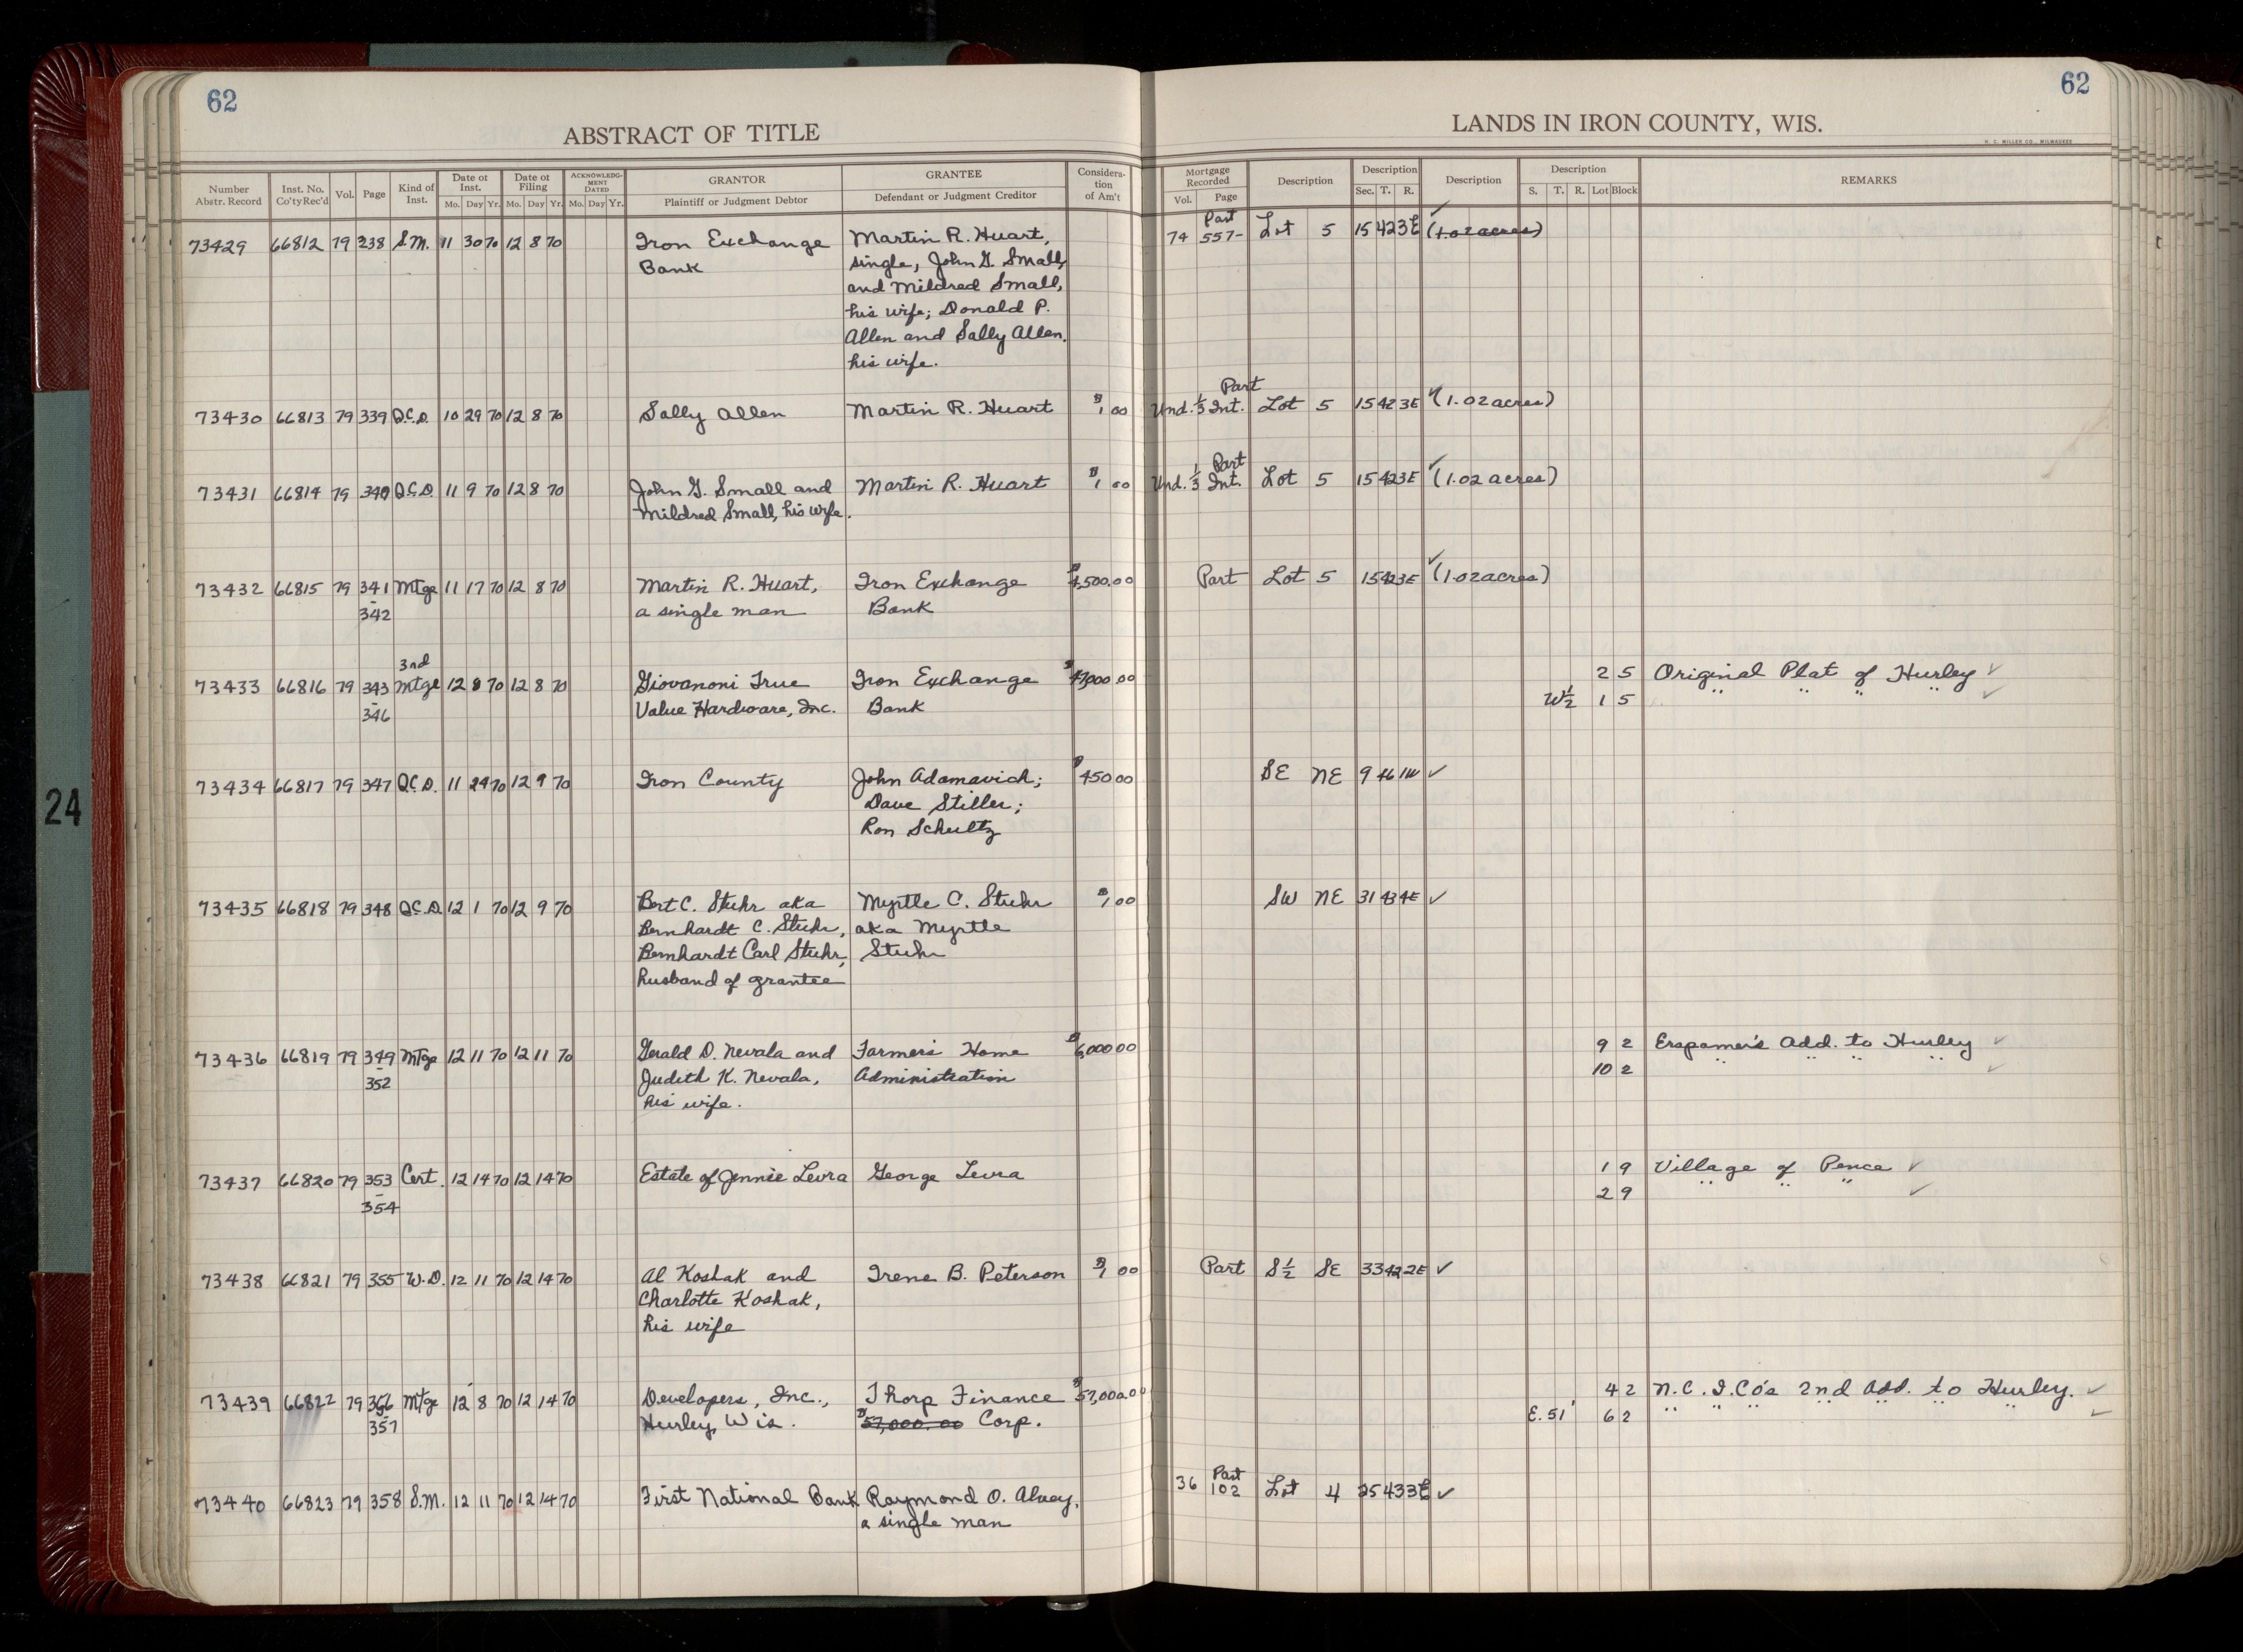 62
62
ABSTRACT OF TITLE
LANDS IN IRON COUNTY, WIS.
H. C. MILLER CO., MILWAUKEE
Number Abstr. Record | Inst. No. Co'ty Rec'd | Vol. | Page | Kind of Inst. | Date of Inst. Mo. Day Yr. | Date of Filing Mo. Day Yr. | ACKNOWLEDG-MENT DATED Mo. Day Yr. | GRANTOR Plaintiff or Judgment Debtor | GRANTEE Defendant or Judgment Creditor | Considera-tion of Am't | Mortgage Recorded Vol. Page | Description | Description Sec. T. R. | Description | Description S. T. R. Lot Block | REMARKS
Part
73429 66812 79 338 S.M. 11 30 70 12 8 70 Iron Exchange Martin R. Huart, 74 557- Lot 5 15 42 3E (1.02 acres)
Bank single, John G. Small
and Mildred Small,
his wife; Donald P.
Allen and Sally Allen,
his wife.
Part
73430 66813 79 339 Q.C.D. 10 29 70 12 8 70 Sally Allen Martin R. Huart $1 00 Und. 1/3 Int. Lot 5 15 42 3E (1.02 acres)
Part
73431 66814 79 340 Q.C.D. 11 9 70 12 8 70 John G. Small and Martin R. Huart $1 00 Und. 1/3 Int. Lot 5 15 42 3E (1.02 acres)
Mildred Small, his wife.
73432 66815 79 341 Mtge 11 17 70 12 8 70 Martin R. Huart, Iron Exchange $4,500.00 Part Lot 5 15 42 3E (1.02 acres)
- 342 a single man Bank
3rd
73433 66816 79 343 Mtge 12 8 70 12 8 70 Giovanoni True Iron Exchange 2 5 Original Plat of Hurley
- 346 Value Hardware, Inc. Bank W½ 1 5 " " " "
73434 66817 79 347 Q.C.D. 11 24 70 12 9 70 Iron County John Adamavich; $450 00 SE NE 9 46 1W
Dave Stiller;
Ron Schultz
73435 66818 79 348 Q.C.D. 12 1 70 12 9 70 Bert C. Stuhr aka Myrtle C. Stuhr $1 00 SW NE 31 43 4E
Bernhardt C. Stuhr, aka Myrtle
Bernhardt Carl Stuhr, Stuhr
husband of grantee
73436 66819 79 349 Mtge 12 11 70 12 11 70 Gerald D. Nevala and Farmers Home $6,000 00 9 2 Erspamer's Add. to Hurley
- 352 Judith K. Nevala, Administration 10 2 " " " "
his wife.
73437 66820 79 353 Cert. 12 14 70 12 14 70 Estate of Jennie Levra George Levra 1 9 Village of Pence
- 354 2 9 " " "
73438 66821 79 355 W.D. 12 11 70 12 14 70 Al Koshak and Irene B. Peterson $1 00 Part S½ SE 33 42 2E
Charlotte Koshak,
his wife
73439 66822 79 356 Mtge 12 8 70 12 14 70 Developers, Inc., Thorp Finance $57,000.00 4 2 N.C.I.Co's 2nd Add. to Hurley.
- 357 Hurley, Wis. $57,000.00 Corp. E. 51' 6 2 " " " " " "
Part
73440 66823 79 358 S.M. 12 11 70 12 14 70 First National Bank Raymond O. Alvey, 36 102 Lot 4 25 43 3E
a single man
24